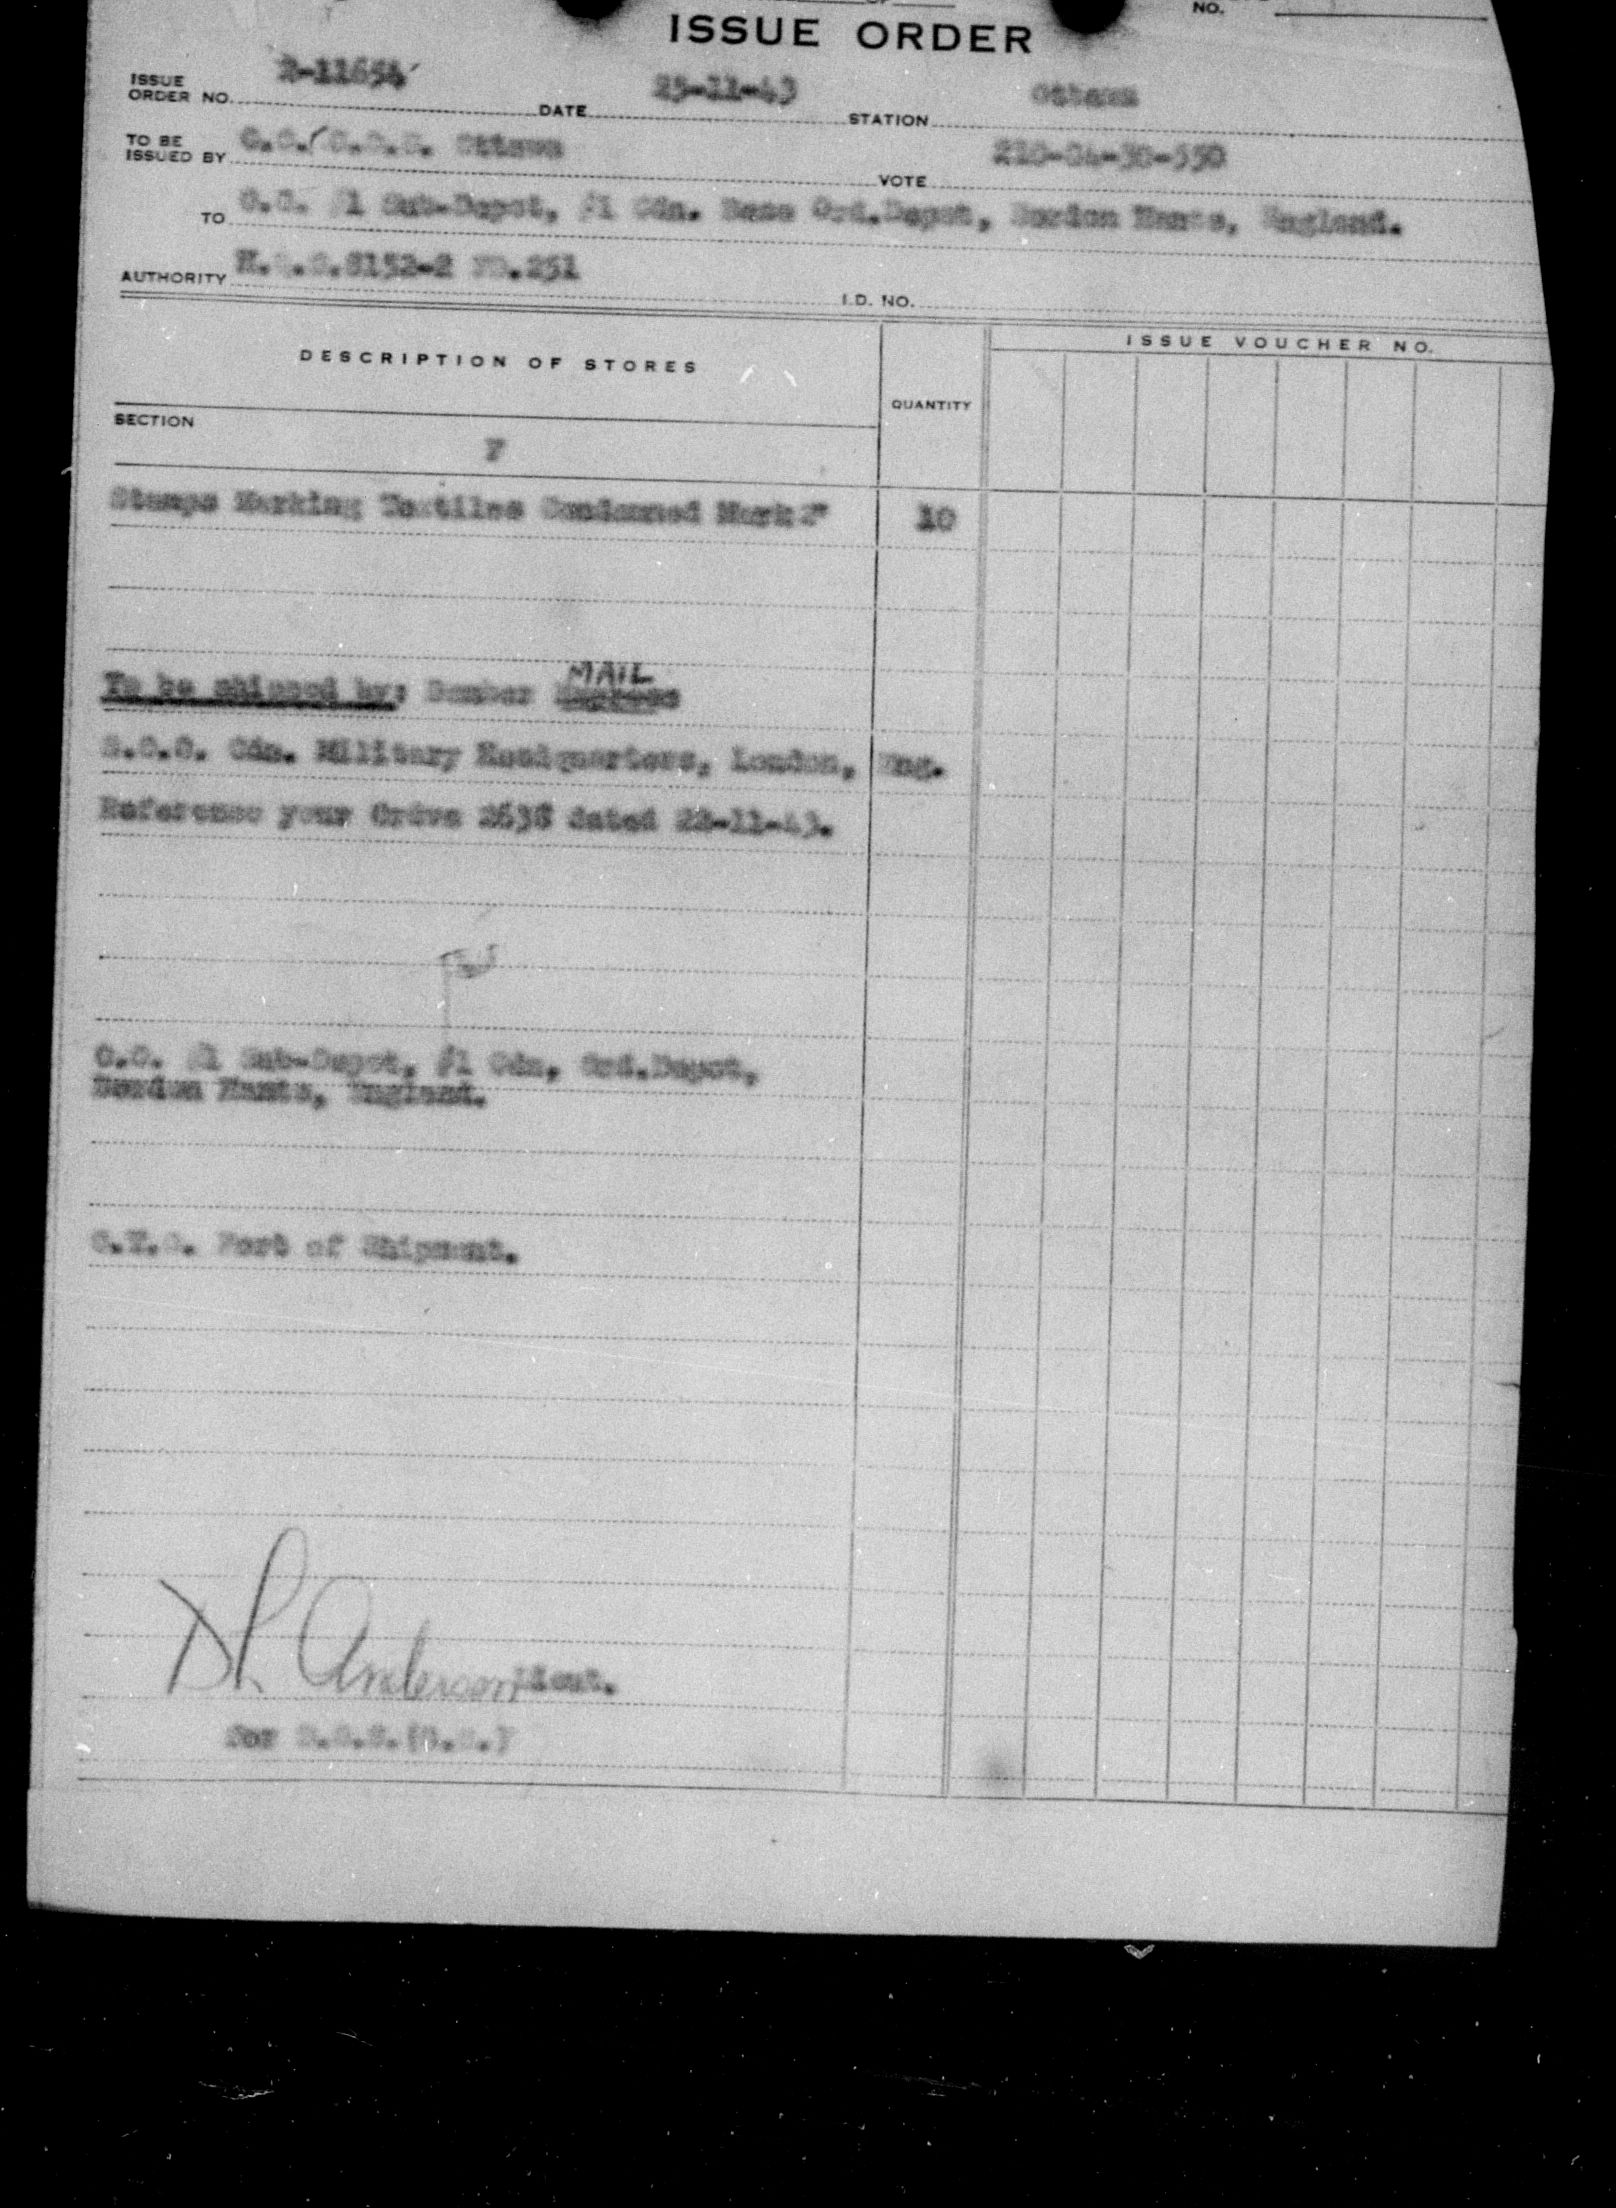 NO.
ISSUE ORDER
ISSUE ORDER NO. 2-11654 DATE 25-11-43 STATION Ottawa
TO BE ISSUED BY Ottawa VOTE 210-04-30-550
TO O.C. #1 Sub-Depot, #1 Cdn. Base Ord.Depot, Bordon Hants, England.
AUTHORITY H.Q.S.8152-2 FD.251 I.D. NO.
DESCRIPTION OF STORES QUANTITY ISSUE VOUCHER NO.
SECTION F
Stamps Marking Textiles Condemned Mark 10
To be shipped by: Bomber MAIL
Cdn. Military Headquarters, London, Eng.
Reference your Ordve 2638 dated 22-11-43.
O.C. #1 Sub-Depot, #1 Cdn. Ord.Depot,
Bordon Hants, England.
Port of Shipment.
DL Anderson Lieut.
for